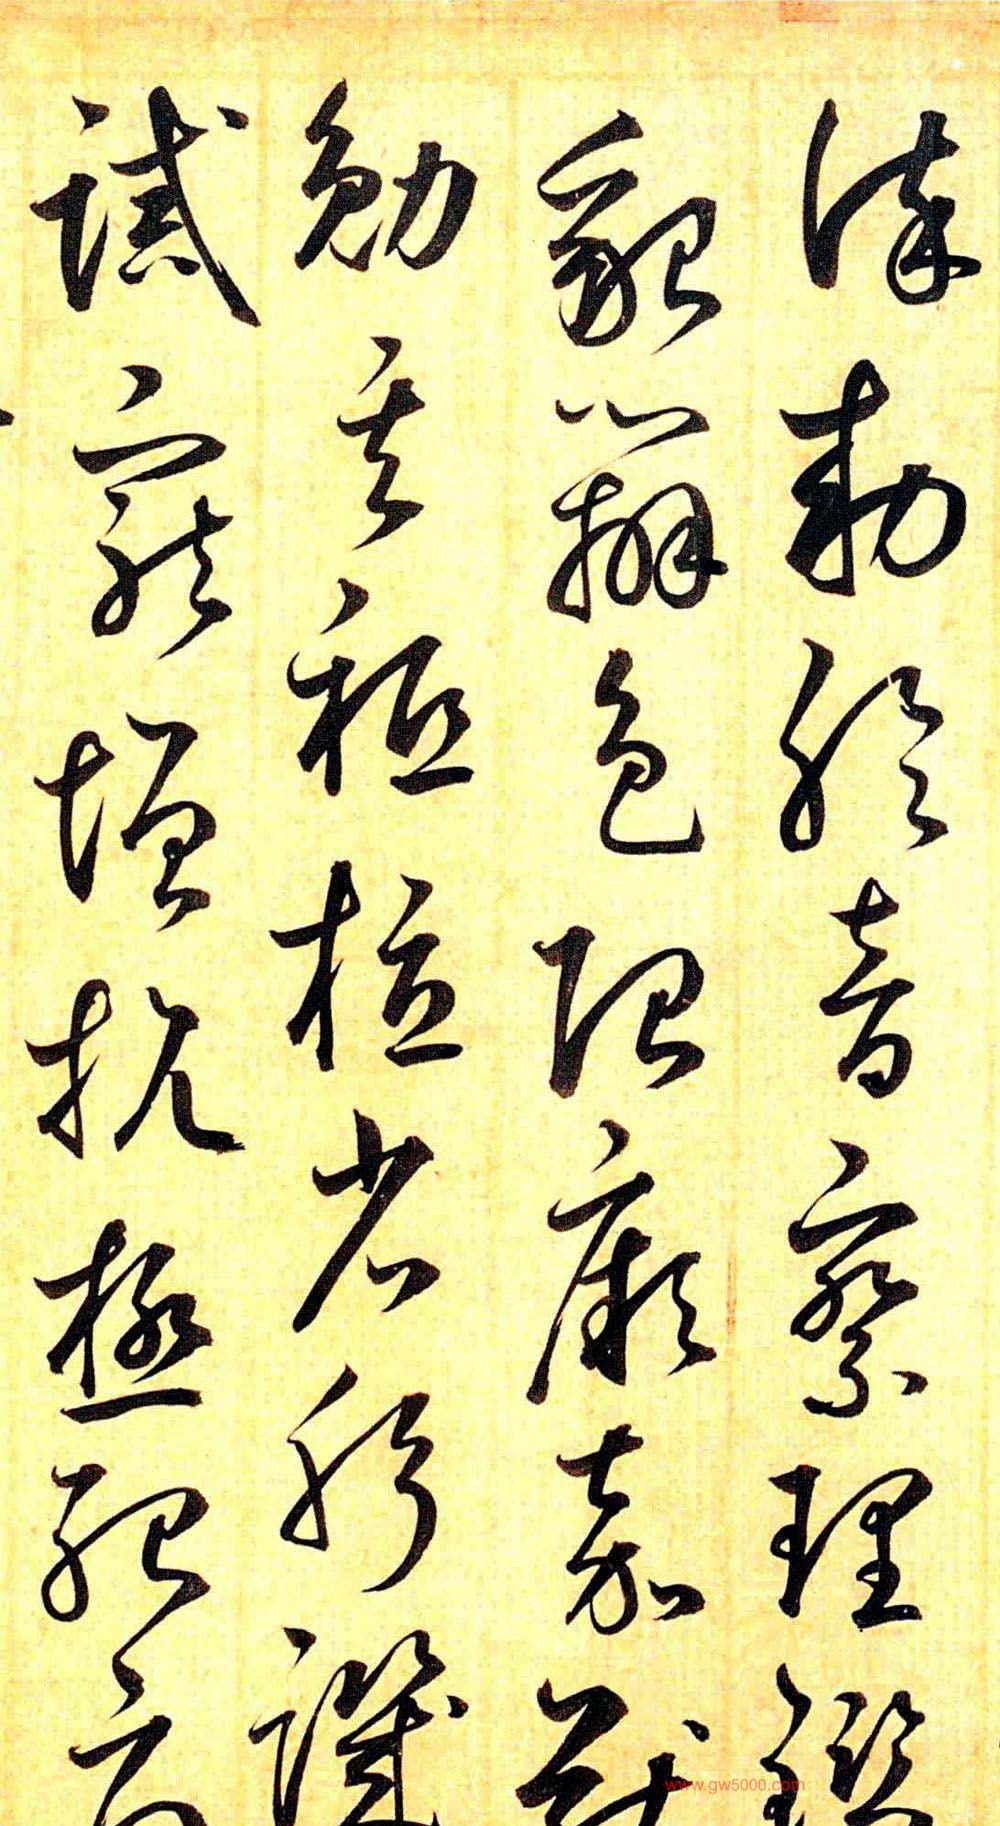 謹勅聆音察理鑑
貌辨色貽厥嘉猷
勉其祗植省躬譏
誡寵增抗極殆辱
www.gw5000.com